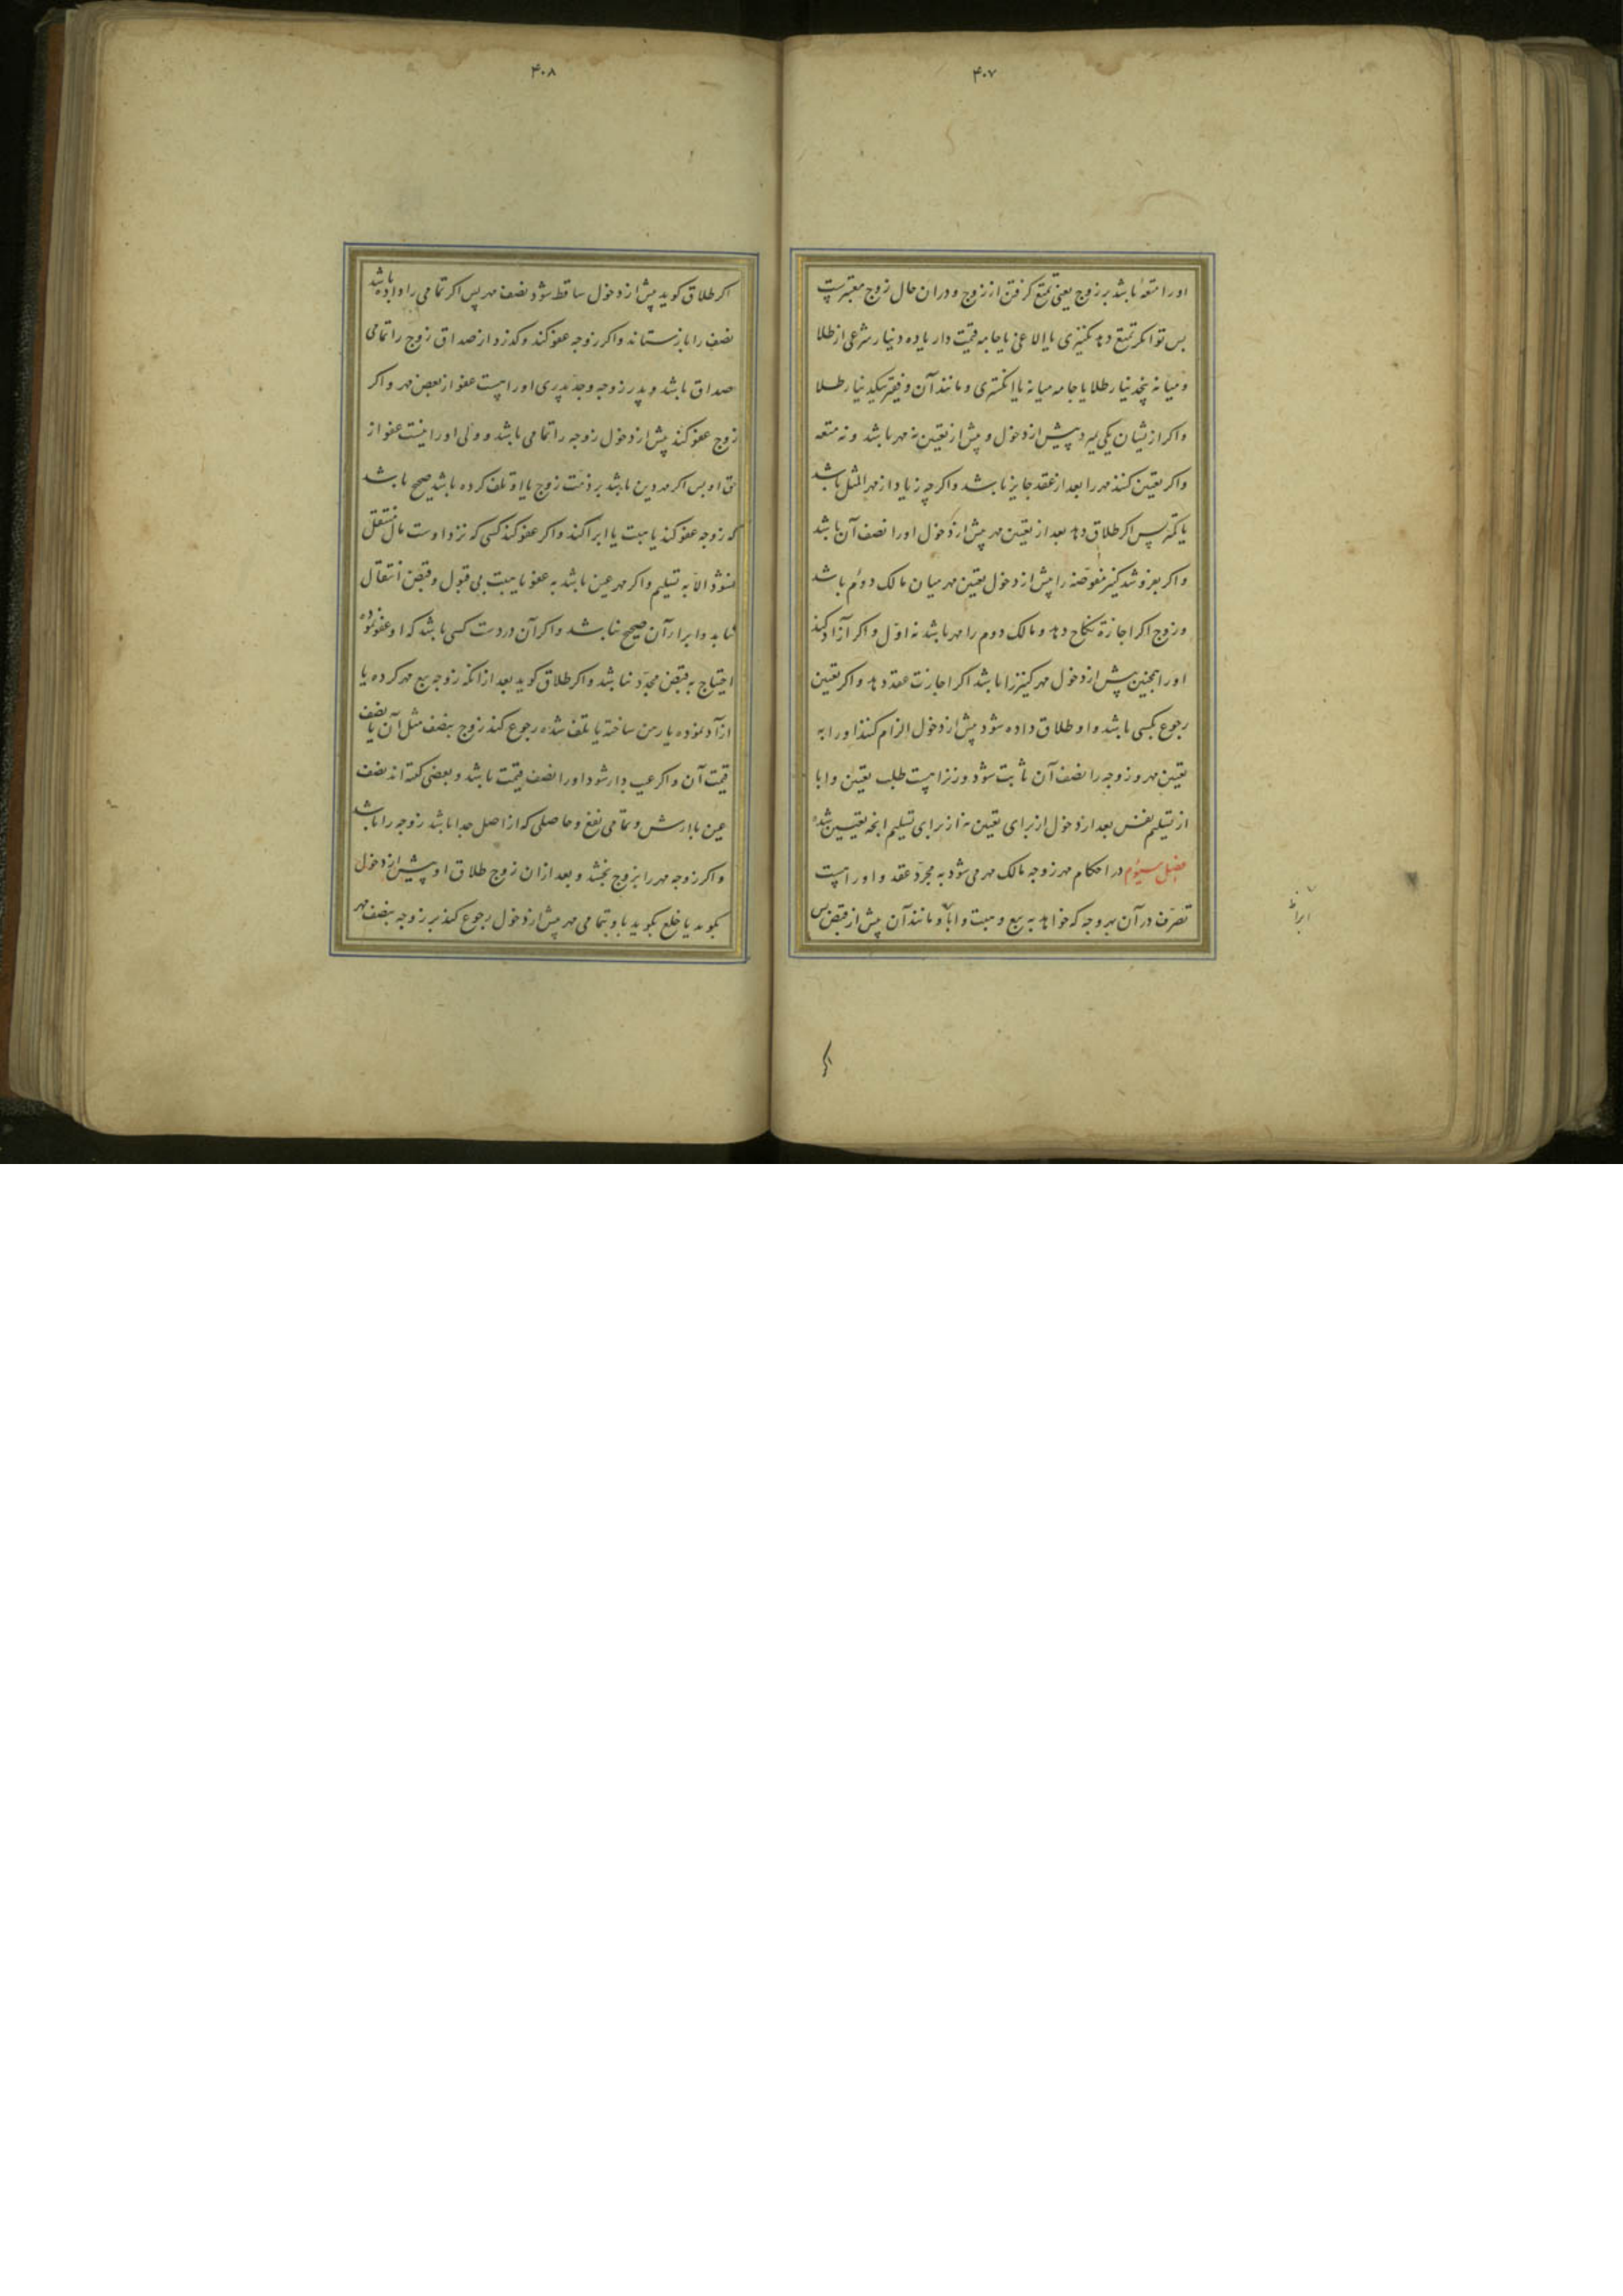 ۴۰۷
اورا متعه باشد بر زوج یعنی تمتع کرفتن از زوج و دران حال زوج معتبرست
پس توانکر تمتع دهد بکنیزی یا الاغی یا جامه قیمت دار یا ده دینار شرعی از طلا
و میانه پنجدینار طلا یا جامه میانه یا انکشتری و مانند آن و فقیر بیکدینار طلا
و اکر ازیشان یکی بمیرد پیش از دخول و پیش از تعیین نه مهر باشد و نه متعه
و اکر تعیین کنند مهر را بعد از عقد جایز باشد و اکرچه زیاد از مهر المثل باشد
یا کمتر پس اکر طلاق دهد بعد از تعیین مهر پیش از دخول اورا نصف آن باشد
و اکر بفروشد کنیز مفوّضه را پیش از دخول تعیین مهر میان مالک دوم باشد
و زوج اکر اجازهٔ نکاح دهد و مالک دوم را مهر باشد نه اوّل و اکر آزاد کند
اورا همچنین پیش از دخول مهر کنیز را باشد اکر اجازت عقد دهد و اکر تعیین
رجوع بکسی باشد و او طلاق داده شود پیش از دخول الزام کنند اورا به
تعیین مهر و زوجه را نصف آن ثابت شود و زنرا هست طلب تعیین و ابا
از تسلیم نفس بعد از دخول از برای تعیین نه از برای تسلیم انچه تعیین شده
فصل سیوم در احکام مهر زوجه مالک مهر می شود به مجرّد عقد و اورا هست
تصرّف در آن بهر وجه که خواهد به بیع و هبت و ابا و مانند آن پیش از قبض پس
اکر
۴۰۸
اکر طلاق کوید پیش از دخول ساقط شود نصف مهر پس اکر تمامی را داده باشد
نصف را باز ستاند و اکر زوجه عفو کند و کذرد از صداق زوج را تمامی
صداق باشد و پدر زوجه و جدّ پدری اورا هست عفو از بعض مهر و اکر
زوج عفو کند پیش از دخول زوجه را تمامی باشد و ولی اورا نیست عفو از
حق او پس اکر مهر دین باشد بر ذمّت زوج یا او تلف کرده باشد صحیح باشد
که زوجه عفو کند یا هبت یا ابرا کند و اکر عفو کند کسی که نزد اوست مال منتقل
نشود الاّ به تسلیم و اکر مهر عین باشد به عفو یا هبت بی قبول و قبض انتقال
نیابد و ابرا از آن صحیح نباشد و اکر آن در دست کسی باشد که او عفو نموده
احتیاج به قبض مجدّد نباشد و اکر طلاق کوید بعد از انکه زوجه بیع مهر کرده یا
ازاد نموده یا رهن ساخته یا تلف شده رجوع کند زوج بنصف مثل آن یا نصف
قیمت آن و اکر عیب دار شود اورا نصف قیمت باشد و بعضی کفته اند نصف
عین با ارش و تمامی نفع و حاصلی که از اصل جدا باشد زوجه را باشد
و اکر زوجه مهر را بزوج بخشد و بعد ازان زوج طلاق او پیش از دخول
بکوید یا خلع بکوید با و تمامی مهر پیش از دخول رجوع کند بر زوجه بنصف مهر